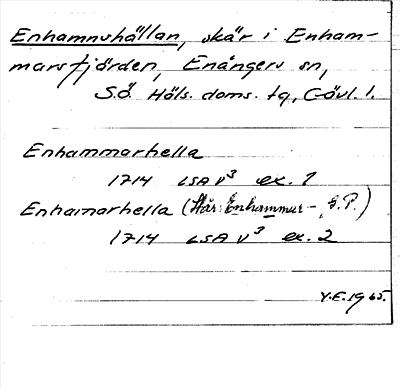 Enhamnshällan, skär i Enham-
marsfjörden, Enångers sn,
S.Ö. Häls. doms. tg, Gävl. l.
Enhammarhella
1714 LSA V³ ex. 1
Enhamarhella (Står: Enhammur-, G.P.)
1714 LSA V³ ex. 2
Y.E. 1965.